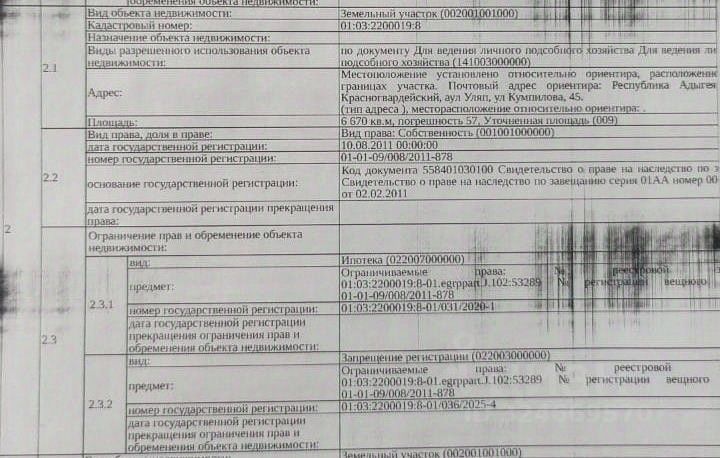 обременения объекта недвижимости:
Вид объекта недвижимости: Земельный участок (002001001000)
Кадастровый номер: 01:03:2200019:8
Назначение объекта недвижимости:
2.1
Виды разрешенного использования объекта недвижимости:
по документу Для ведения личного подсобного хозяйства Для ведения ли
подсобного хозяйства (141003000000)
Адрес:
Местоположение установлено относительно ориентира, расположенн
границах участка. Почтовый адрес ориентира: Республика Адыгея
Красногвардейский, аул Уляп, ул Кумпилова, 45.
(тип адреса ), месторасположение относительно ориентира: .
Площадь: 6 670 кв.м, погрешность 57, Уточненная площадь (009)
2
2.2
Вид права, доля в праве: Вид права: Собственность (001001000000)
дата государственной регистрации: 10.08.2011 00:00:00
номер государственной регистрации: 01-01-09/008/2011-878
основание государственной регистрации:
Код документа 558401030100 Свидетельство о праве на наследство по з
Свидетельство о праве на наследство по завещанию серия 01АА номер 00
от 02.02.2011
дата государственной регистрации прекращения
права:
2.3
Ограничение прав и обременение объекта
недвижимости:
2.3.1
вид: Ипотека (022007000000)
предмет:
Ограничиваемые права: № реестровой
01:03:2200019:8-01.egrppart.J.102:53289 № регистрации вещного
01-01-09/008/2011-878
номер государственной регистрации: 01:03:2200019:8-01/031/2020-1
дата государственной регистрации
прекращения ограничения прав и
обременения объекта недвижимости:
2.3.2
вид: Запрещение регистрации (022003000000)
предмет:
Ограничиваемые права: № реестровой
01:03:2200019:8-01.egrppart.J.102:53289 № регистрации вещного
01-01-09/008/2011-878
номер государственной регистрации: 01:03:2200019:8-01/036/2025-4
дата государственной регистрации
прекращения ограничения прав и
обременения объекта недвижимости:
Земельный участок (002001001000)